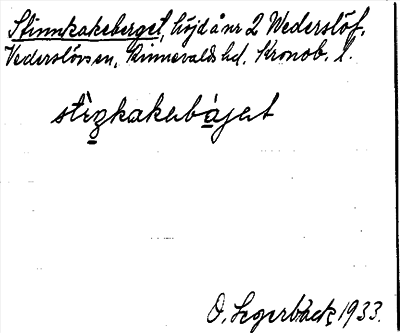 Stinnkakeberget, höjd å nr 2 Wederslöf,
Vederslövs sn, Kinnevalds hd. Kronob. l.
stìnkakabájat
O. Segerbäck, 1933.